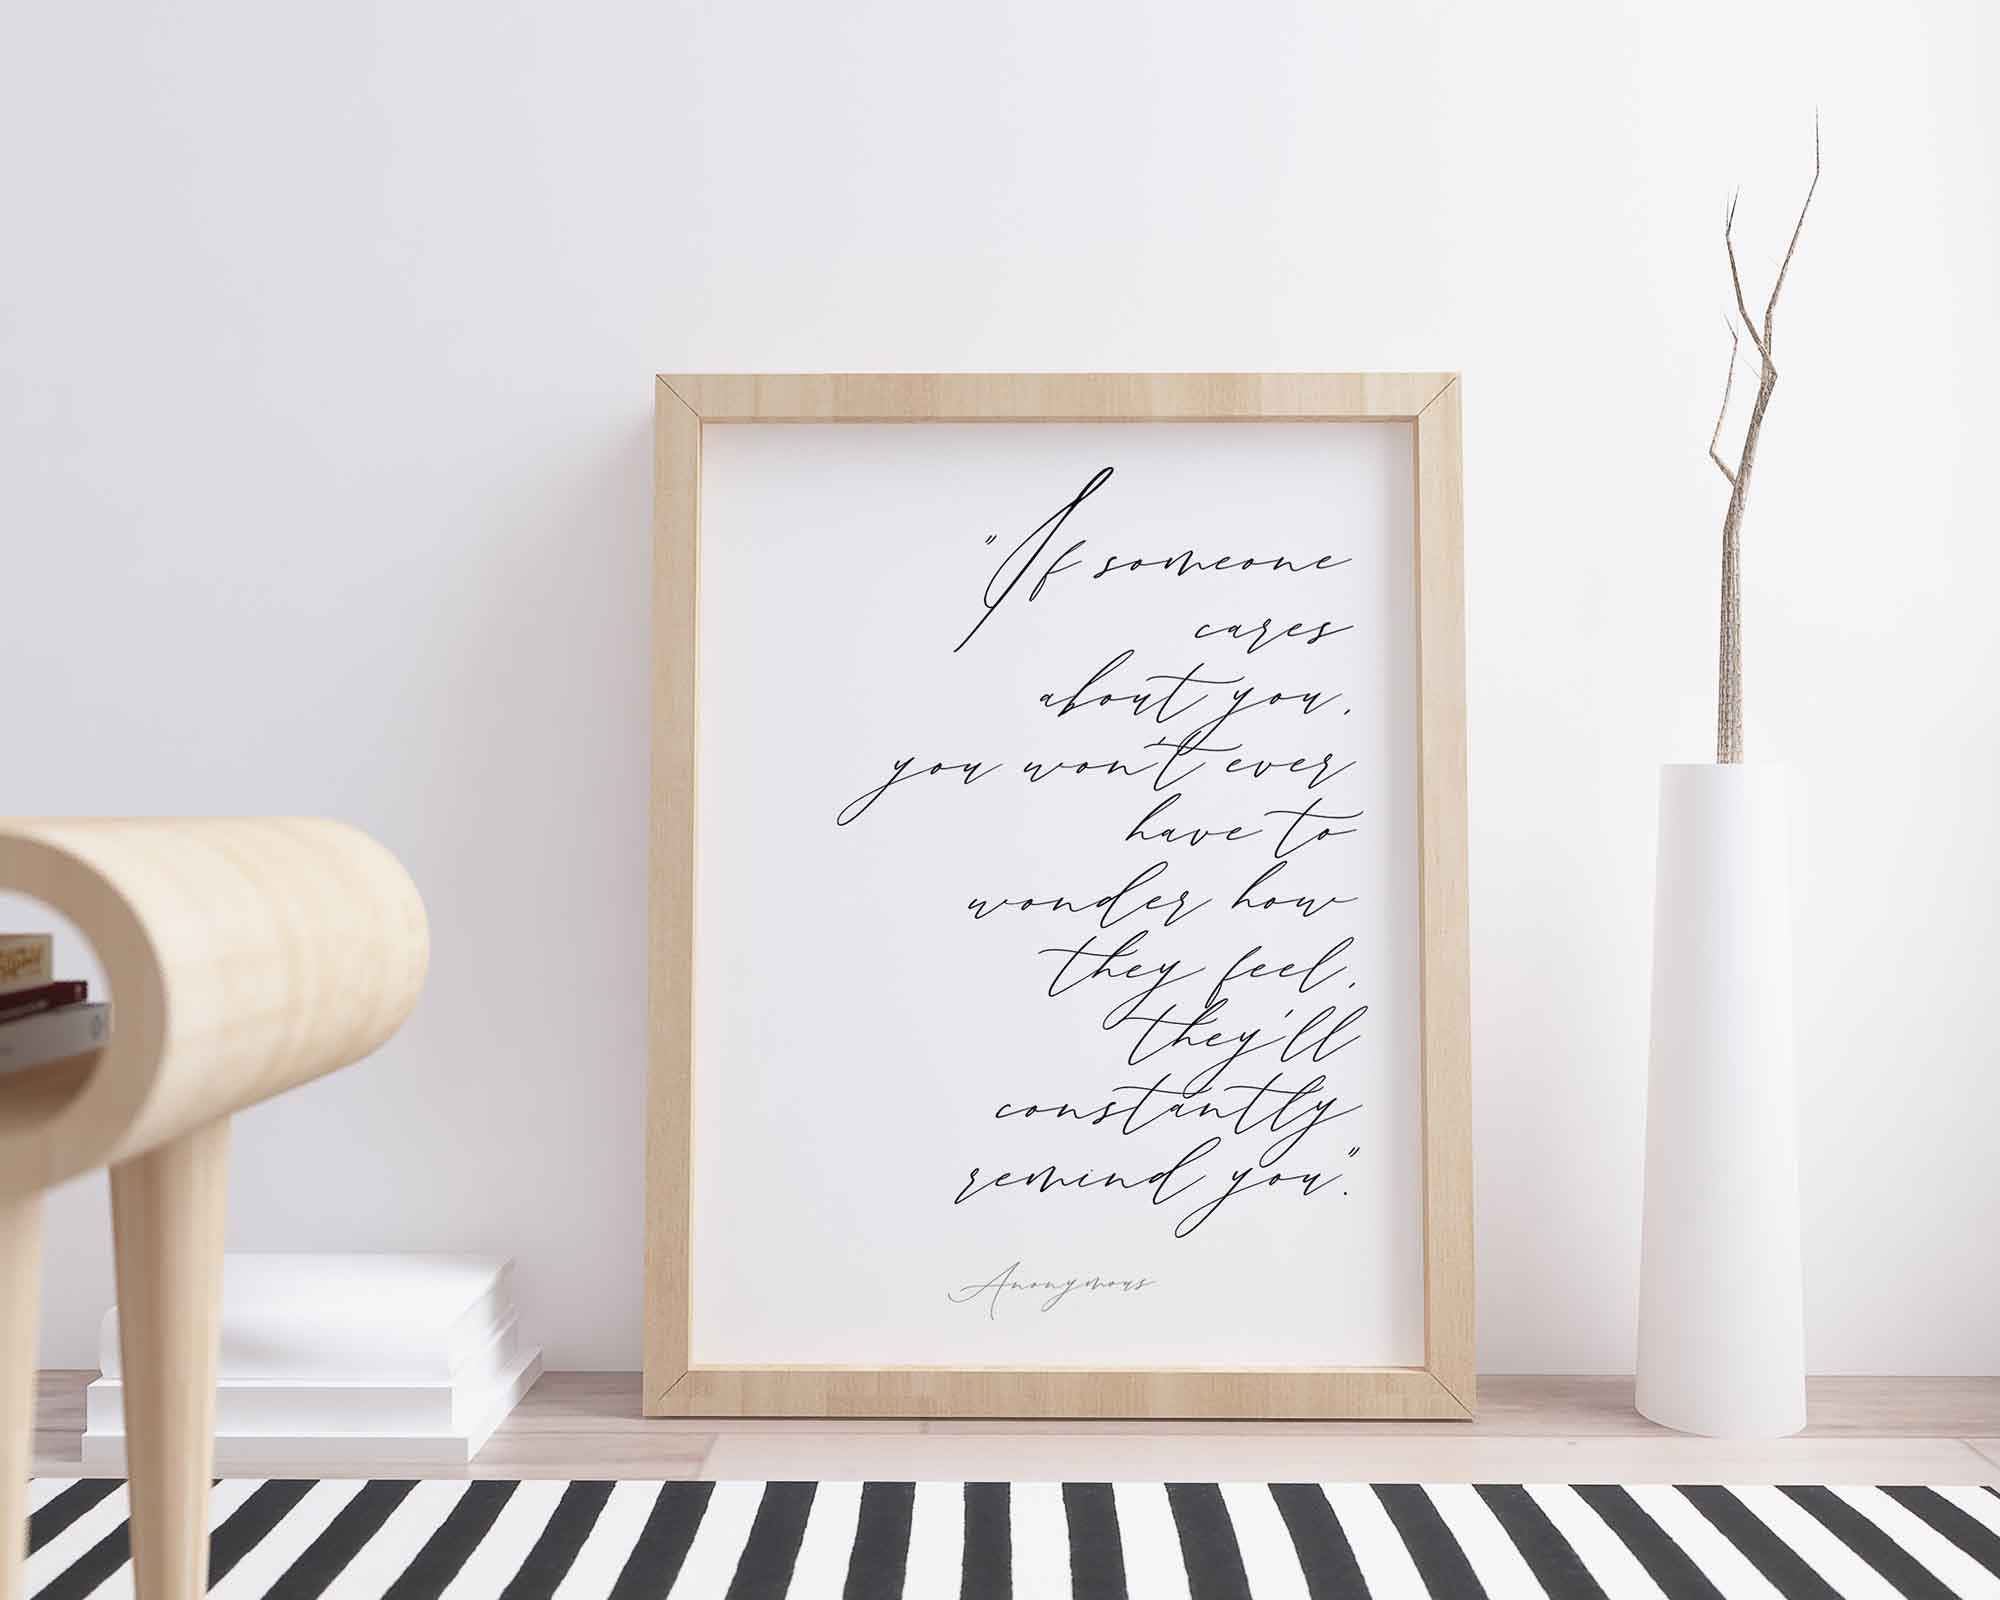 "If someone
cares
about you,
you won't ever
have to
wonder how
they feel,
they'll
constantly
remind you."
Anonymous